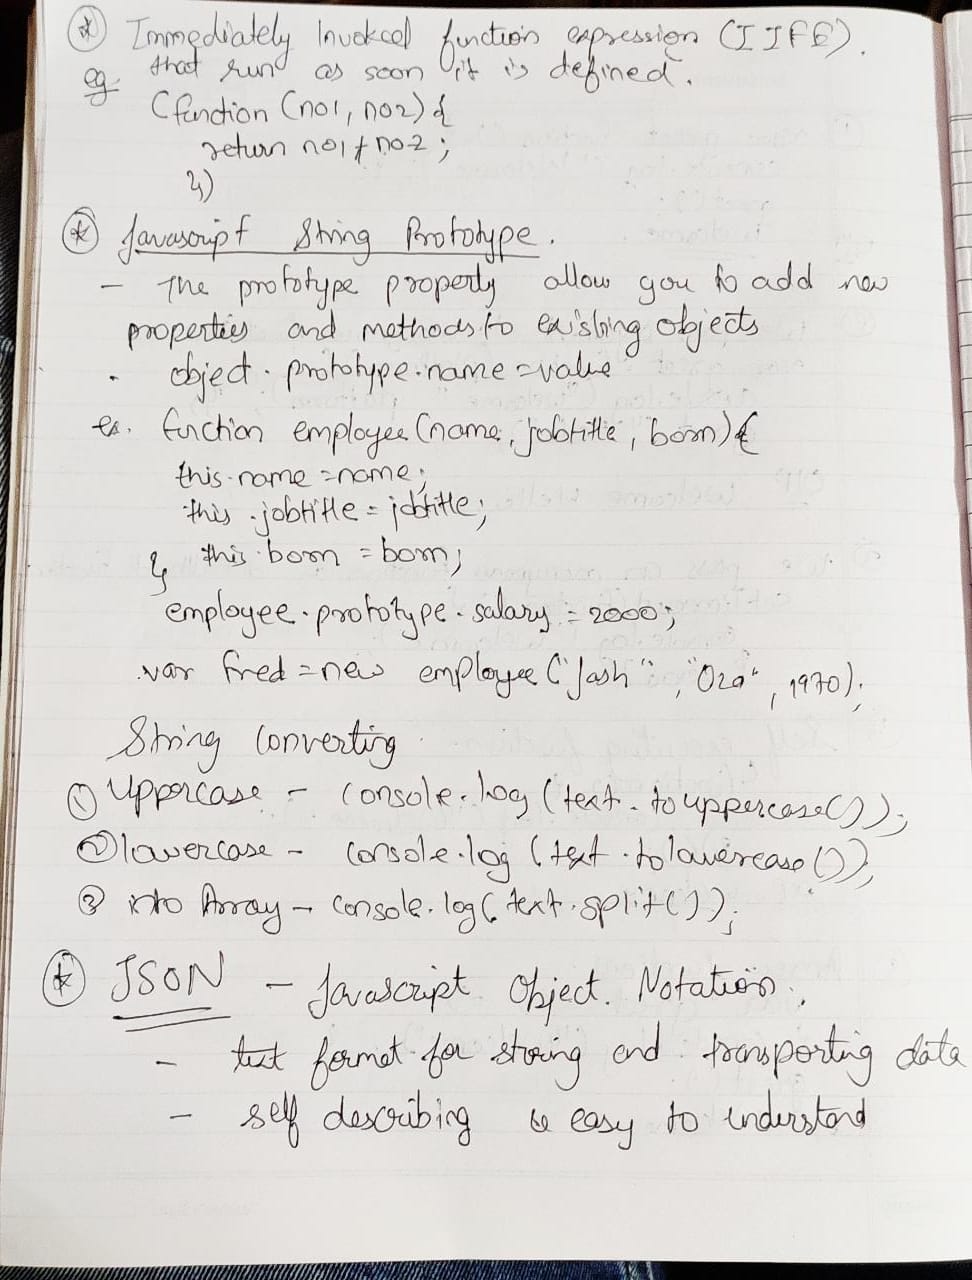 * Immediately Invokced function expression (IIFE).
that run as soon it is defined.
eg. (function (no1, no2) {
return no1 + no2 ;
})
* Javascript String Prototype.
- The prototype property allow you to add new
properties and methods to existing objects
. object . prototype.name = value
ex. function employee (name, jobtitle, born) {
this.name = name;
this .jobtitle = jobtitle;
this.born = born;
}
employee.prototype.salary = 2000;
var fred = new employee ("Jash", "Oza", 1970);
String Converting
① Uppercase - console.log (text.touppercase());
② lowercase - console.log (text.tolowercase());
③ into Array - console.log( text.split());
* JSON - Javascript Object. Notation.
- text format for storing and transporting data
- self describing & easy to understand